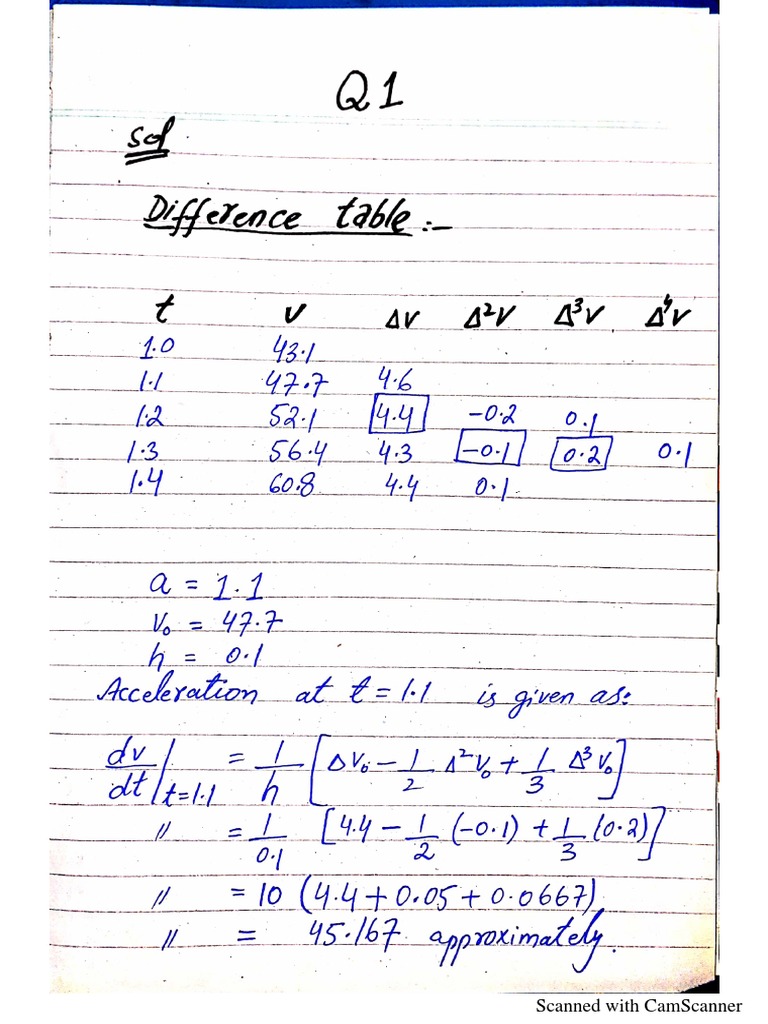 Q1
Sol
Difference table:-
t v Δv Δ²v Δ³v Δ⁴v
1.0 43.1
1.1 47.7 4.6
1.2 52.1 4.4 -0.2 0.1
1.3 56.4 4.3 -0.1 0.2 0.1
1.4 60.8 4.4 0.1
a = 1.1
v₀ = 47.7
h = 0.1
Acceleration at t = 1.1 is given as:
dv/dt|t=1.1 = 1/h [Δv₀ - 1/2 Δ²v₀ + 1/3 Δ³v₀]
〃 = 1/0.1 [4.4 - 1/2 (-0.1) + 1/3 (0.2)]
〃 = 10 (4.4 + 0.05 + 0.0667)
〃 = 45.167 approximately.
Scanned with CamScanner